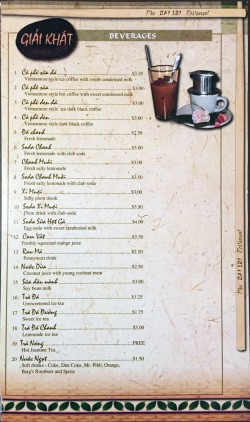 Pho DAY LOY Restaurant
GIẢI KHÁT
BEVERAGES
1 Cà phê sữa đá $3.25
Vietnamese style ice coffee with sweet condensed milk
2 Cà phê sữa $3.00
Vietnamese style hot coffee with sweet condensed milk
3 Cà phê đen đá $3.00
Vietnamese style ice dark black coffee
4 Cà phê đen $3.00
Vietnamese style dark black coffee
5 Đá chanh $2.50
Fresh lemonade
6 Soda Chanh $3.00
Fresh lemonade with club soda
7 Chanh Muối $3.00
Fresh salty lemonade
8 Soda Chanh Muối $3.50
Fresh salty lemonade with club soda
9 Xí Muội $3.00
Salty plum drink
10 Soda Xí Muội $3.50
Plum drink with club soda
11 Soda Sữa Hột Gà $4.00
Egg soda with sweet condensed milk
12 Cam Vắt $3.50
Freshly squeezed orange juice
13 Rau Má $2.50
Pennywort drink
14 Nước Dừa $2.50
Coconut juice with young coconut meat
15 Sữa đậu nành $3.00
Soy bean milk
16 Trà Đá $1.25
Unsweetened ice tea
17 Trà Đá Đường $1.75
Sweet ice tea
18 Trà Đá Chanh $3.00
Lemonade ice tea
19 Trà Nóng FREE
Hot Jasmine Tea
20 Nước Ngọt $1.50
Soft drinks - Coke, Diet Coke, Mr. Pibb, Orange,
Barg's Rootbeer and Sprite